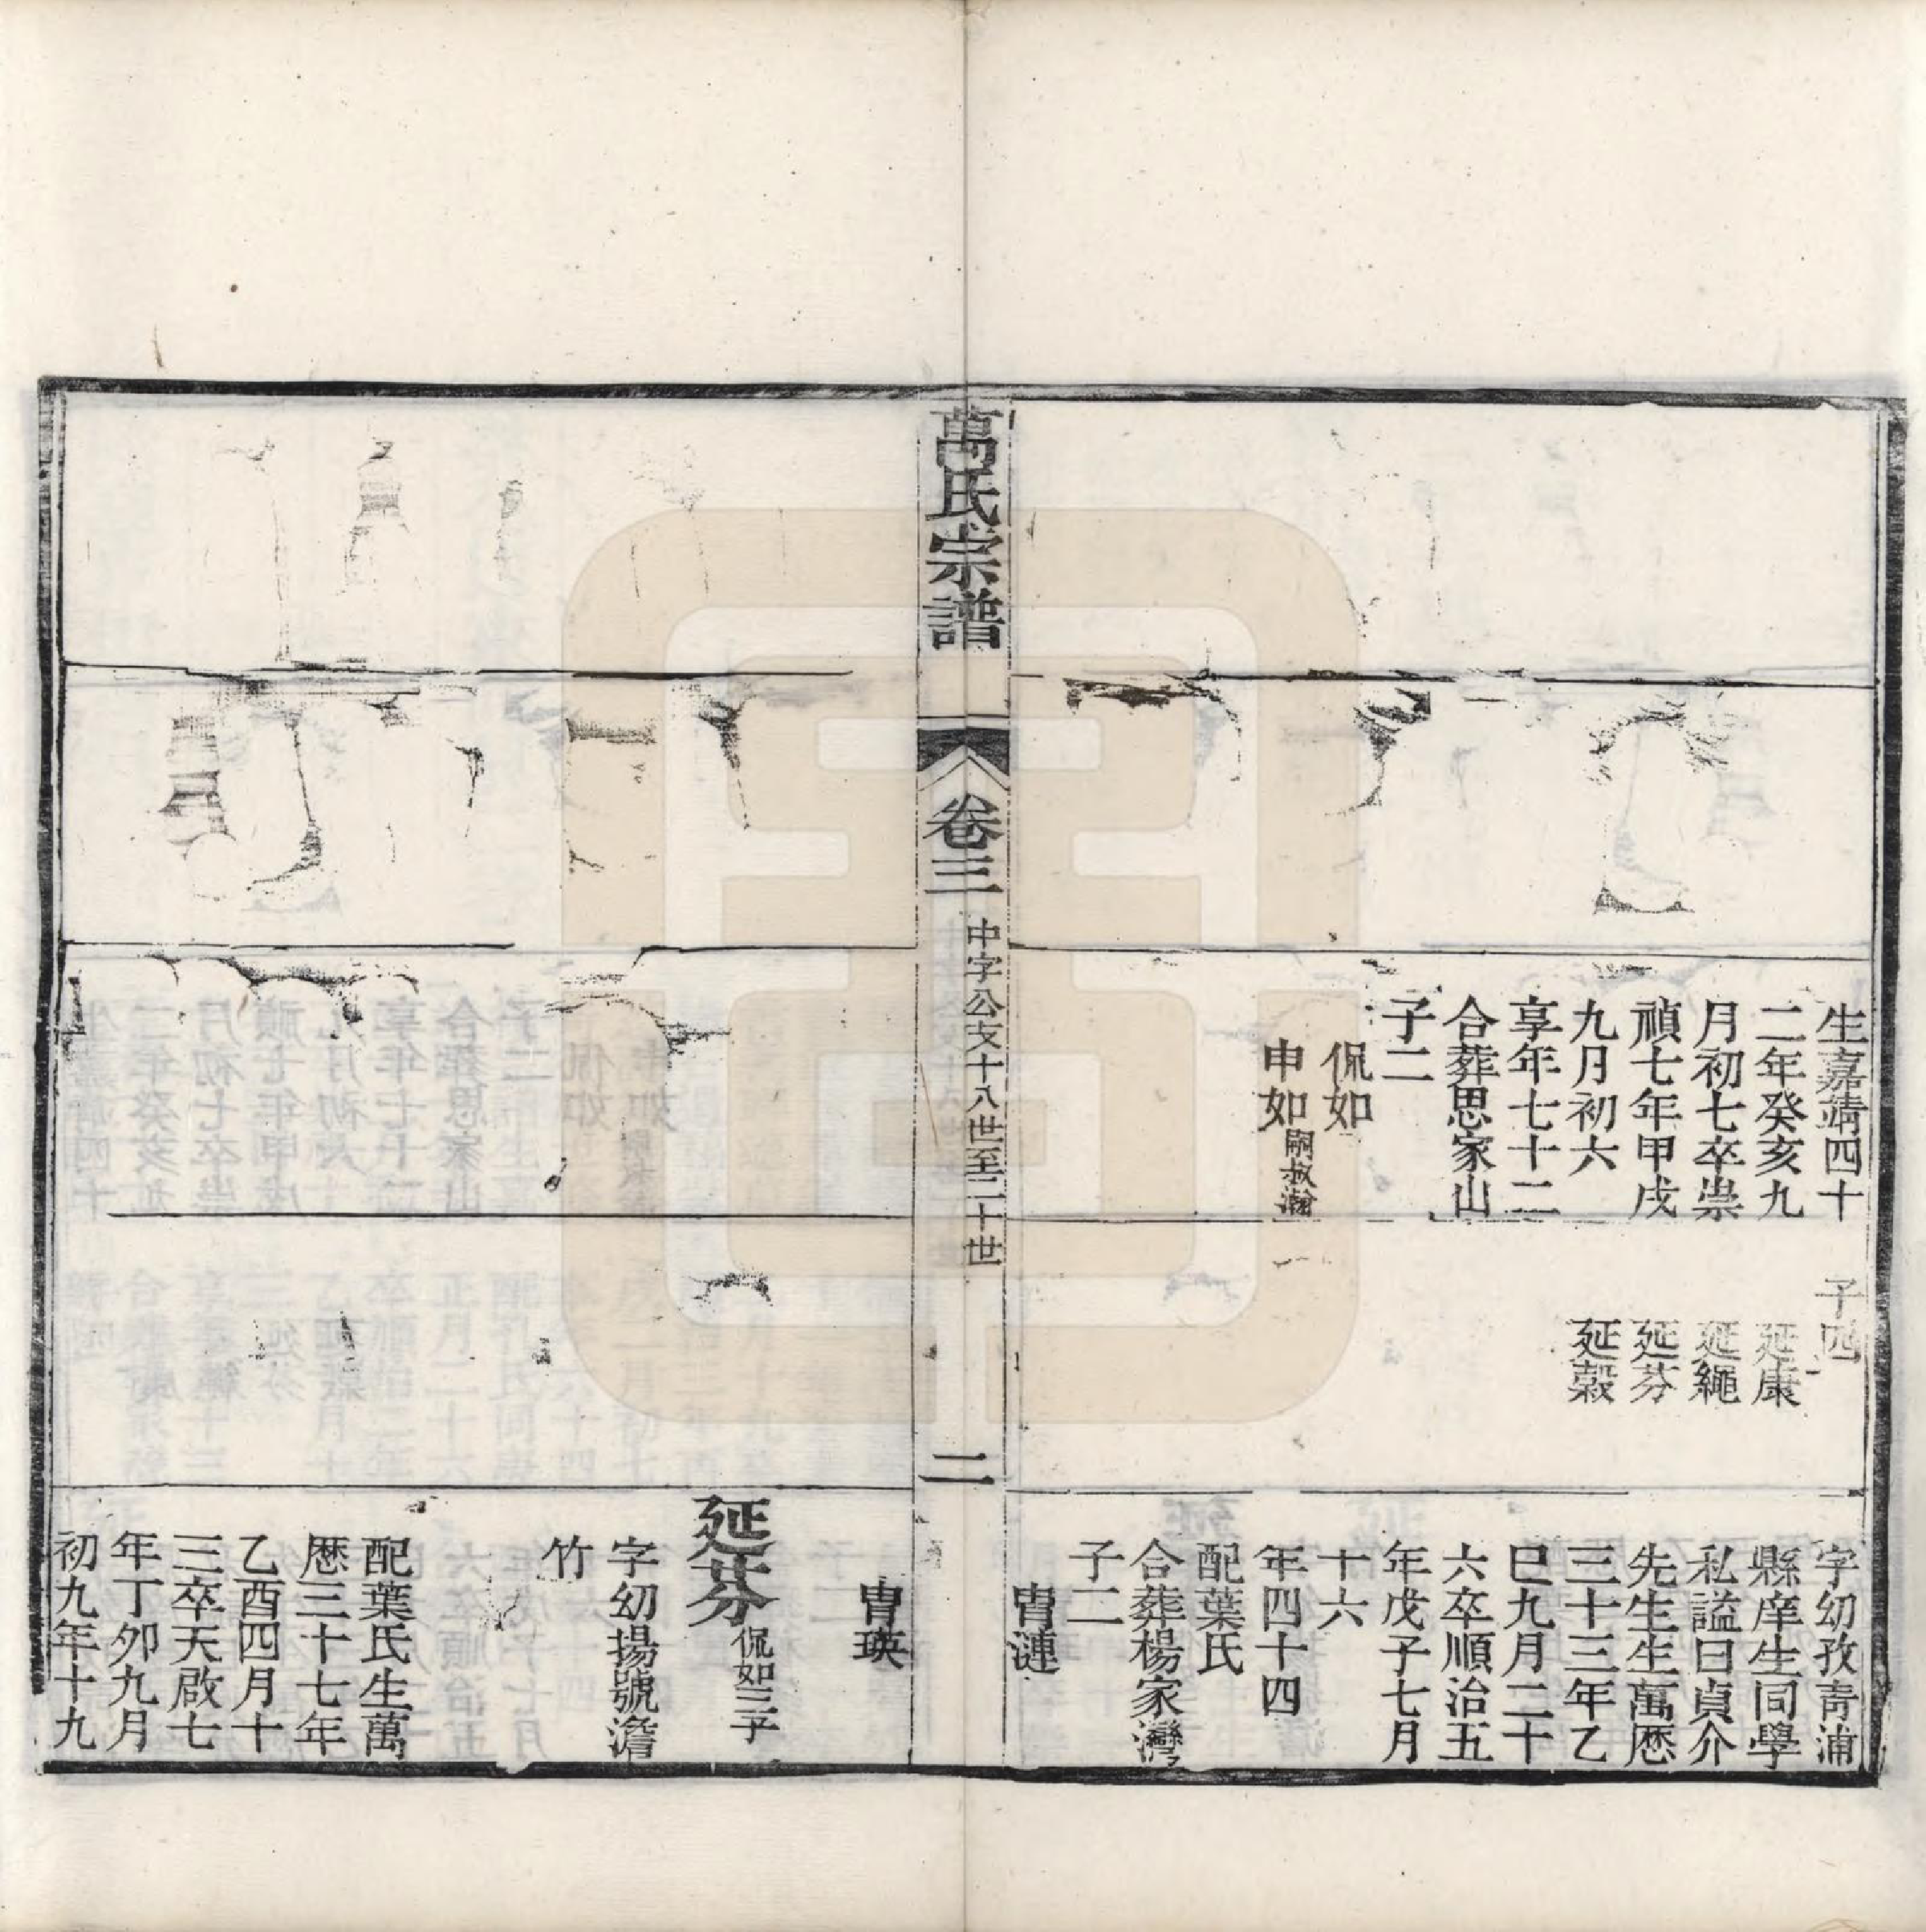 生嘉靖四十
二年癸亥九
月初七卒崇
禎七年甲戌
九月初六
享年七十二
合葬思家山
子二
侃如
申如嗣叔瀚
子四
延康
延繩
延芬
延穀
字幼孜青浦
縣庠生同學
私謚曰貞介
先生生萬厯
三十三年乙
巳九月二十
六卒順治五
年戊子七月
十六
年四十四
配葉氏
合葬楊家灣
子二
胄漣
萬氏宗譜
卷三
中字公支十八世至二十世
二
胄瑛
延芬侃如三子
字幼揚號澹
竹
配葉氏生萬
厯三十七年
乙酉四月十
三卒天啟七
年丁卯九月
初九年十九